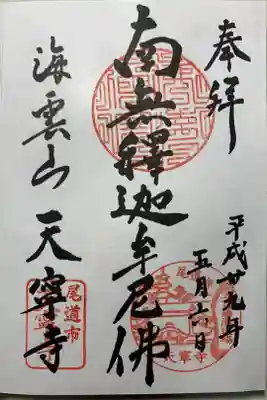 奉拝
平成廿九年
五月六日
南無釋迦牟尼佛
海雲山 天寧寺
尾道市
尾道
天寧寺